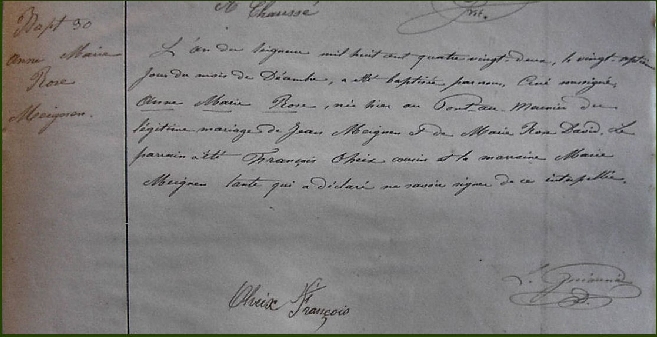 Chaussé
Bapt 30
Anne Marie
Rose
Meignen.
L'an du Seigneur mil huit cent quatre vingt-deux, le vingt-sept
jour du mois de Décembre, a été baptisée par nous, Curé soussigné,
Anne Marie Rose, née hier au du
légitime mariage de Jean Meignen & de Marie David. Le
parrain a été François Oheix cousin et la marraine Marie
Meignen tante qui a déclaré ne savoir signer de ce interpellée.
Oheix François